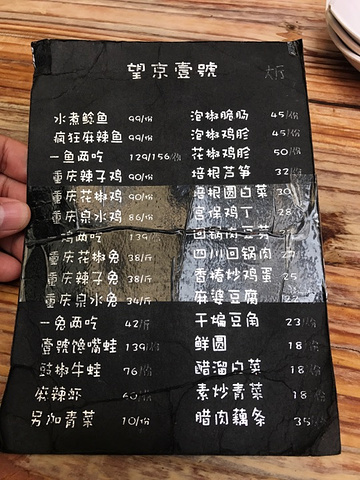 望京壹號
大厅
水煮鲶鱼 99/份
疯狂麻辣鱼 99/份
一鱼两吃 129/156/份
重庆辣子鸡 90/份
重庆花椒鸡 90/份
重庆泉水鸡 86/份
鸡两吃 139/
重庆花椒兔 38/斤
重庆辣子兔 38/斤
重庆泉水兔 34/斤
一兔两吃 42/斤
壹號馋嘴蛙 139/份
豉椒牛蛙 76/份
麻辣虾 60/份
另加青菜 10/份
泡椒脆肠 45/份
泡椒鸡胗 45/份
花椒鸡胗 50/份
培根芦笋 32/份
培根圆白菜 30
宫保鸡丁 28
回锅肉豆芽
四川回锅肉 27
香椿炒鸡蛋 25
麻婆豆腐 22
干煸豆角 23/份
鲜圆 18/份
醋溜白菜 18/份
素炒青菜 18/份
腊肉藕条 35/份